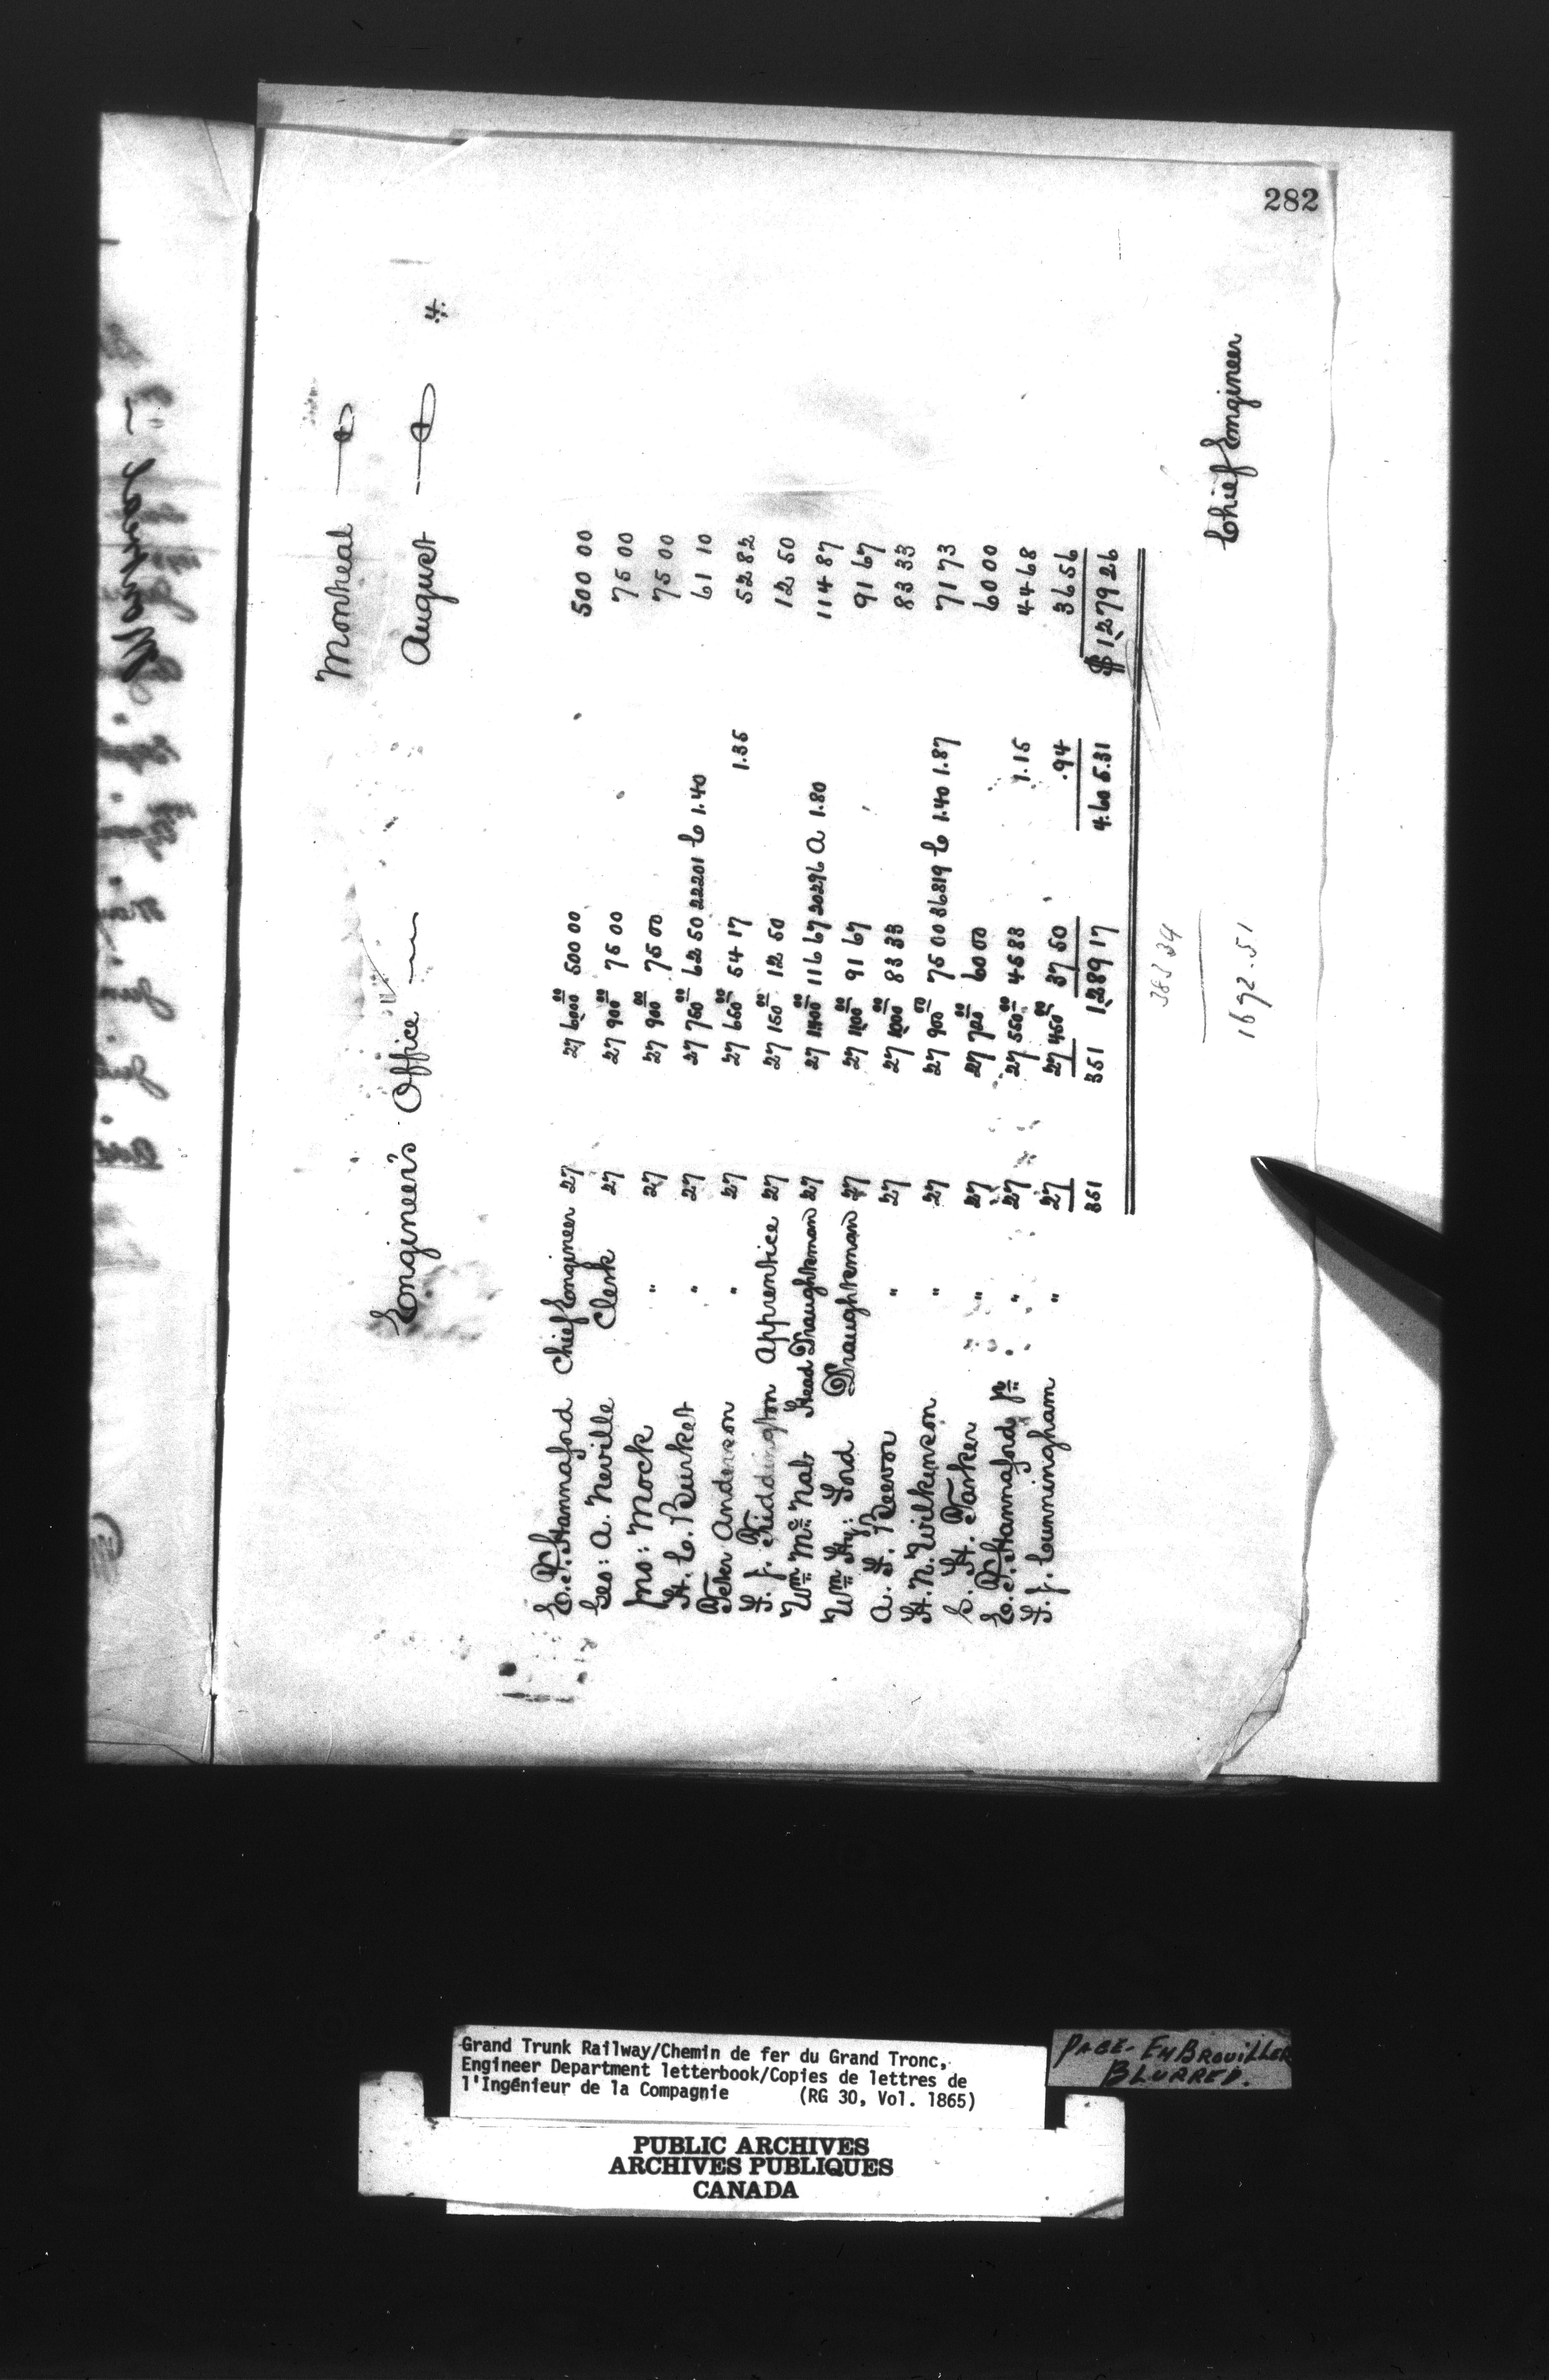 282
Montreal
Engineer's Office August 4.
E. P. Hannaford Chief Engineer 27 27 6000 00 500 00 500 00
Geo: A. Neville Clerk 27 27 900 00 75 00 75 00
Jno: Mock " 27 27 900 00 75 00 75 00
H. C. Burket " 27 27 750 00 62 50 22201 C 1.40 61 10
Peter Anderson " 27 27 650 00 54 17 1.35 52 82
F. J. Riddington Apprentice 27 27 150 00 12 50 12 50
Wm McNab Head Draughtsman 27 27 1400 00 116 67 20296 A 1.80 114 87
Wm Hy: Lord Draughtsman 27 27 1100 00 91 67 91 67
A. F. Reevor " 27 27 1000 00 83 33 83 33
H. N. Wilkinson " 27 27 900 00 75 00 36819 C 1.40 1.87 71 73
C. H. Parker " 27 27 720 00 60 00 60 00
E. P. Hannaford Jr " 27 27 550 00 45 83 1.15 44 68
F. J. Cunningham " 27 27 450 00 37 50 .94 36 56
351 351 1,289 17 4.60 5.31 $1,279 26
383 34
1692.51
Chief Engineer
Montreal
Grand Trunk Railway/Chemin de fer du Grand Tronc,
Engineer Department letterbook/Copies de lettres de
l'Ingénieur de la Compagnie (RG 30, Vol. 1865)
PAGE-EMBROUILLER
BLURRED.
PUBLIC ARCHIVES
ARCHIVES PUBLIQUES
CANADA